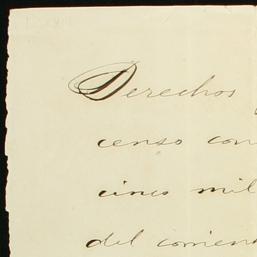 Derechos
censo con
cinco mil
del corrien